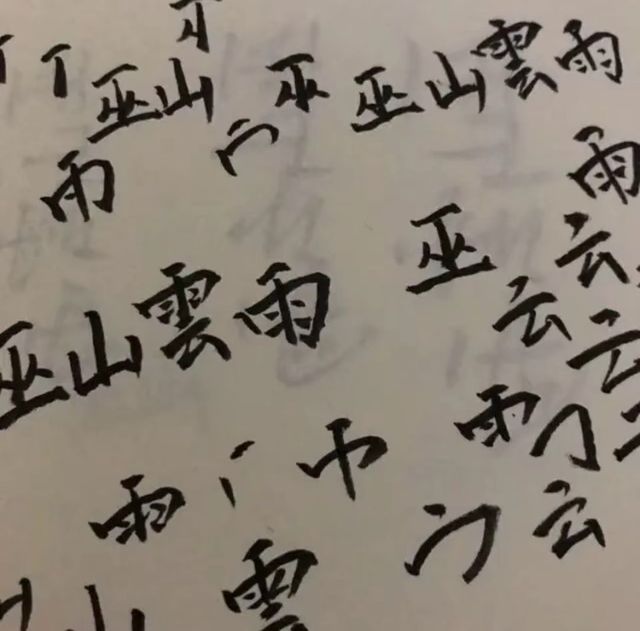 巫山 巫 巫山雲雨
雨
雨
巫 云
云
巫山雲雨
云
雨
巾
雨
云
山 雲